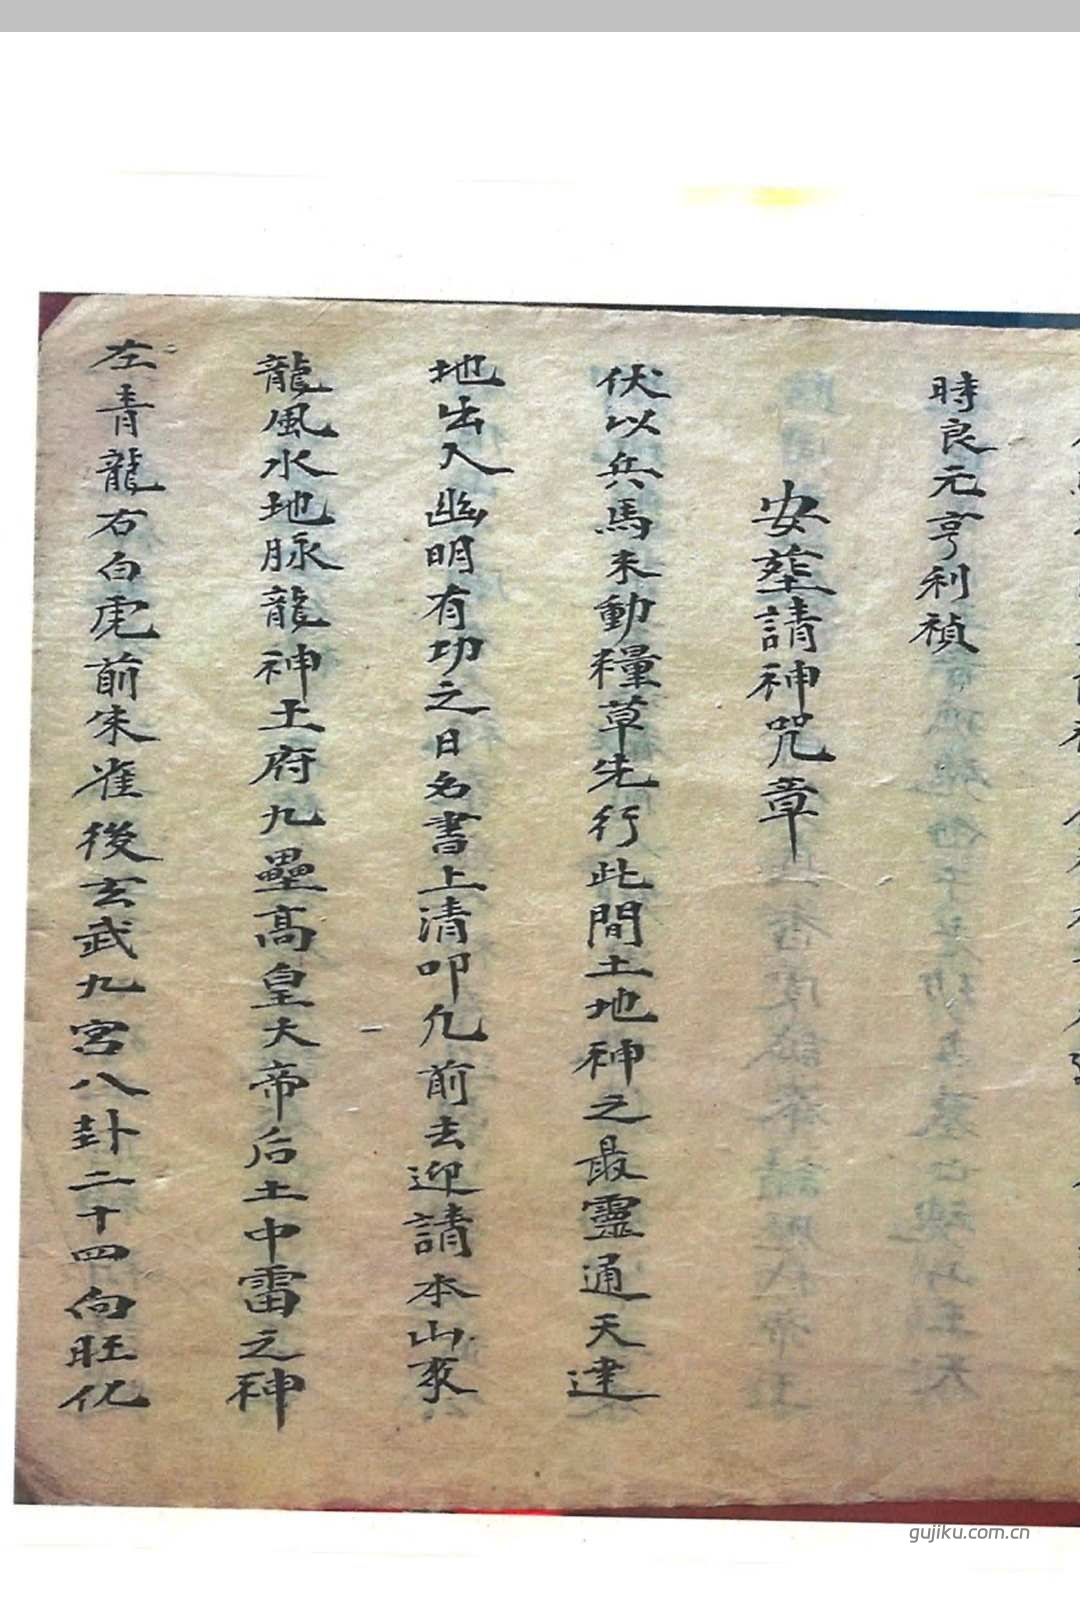 時良元亨利禎
安塟請神咒章
伏以兵馬未動糧草先行此間土地神之最靈通天達
地出入幽明有功之日名書上清叩凢前去迎請本山來
龍風水地脉龍神王府九壘高皇大帝后土中雷之神
左青龍右白虎前朱雀後玄武九宮八卦二十四向旺
gujiku.com.cn